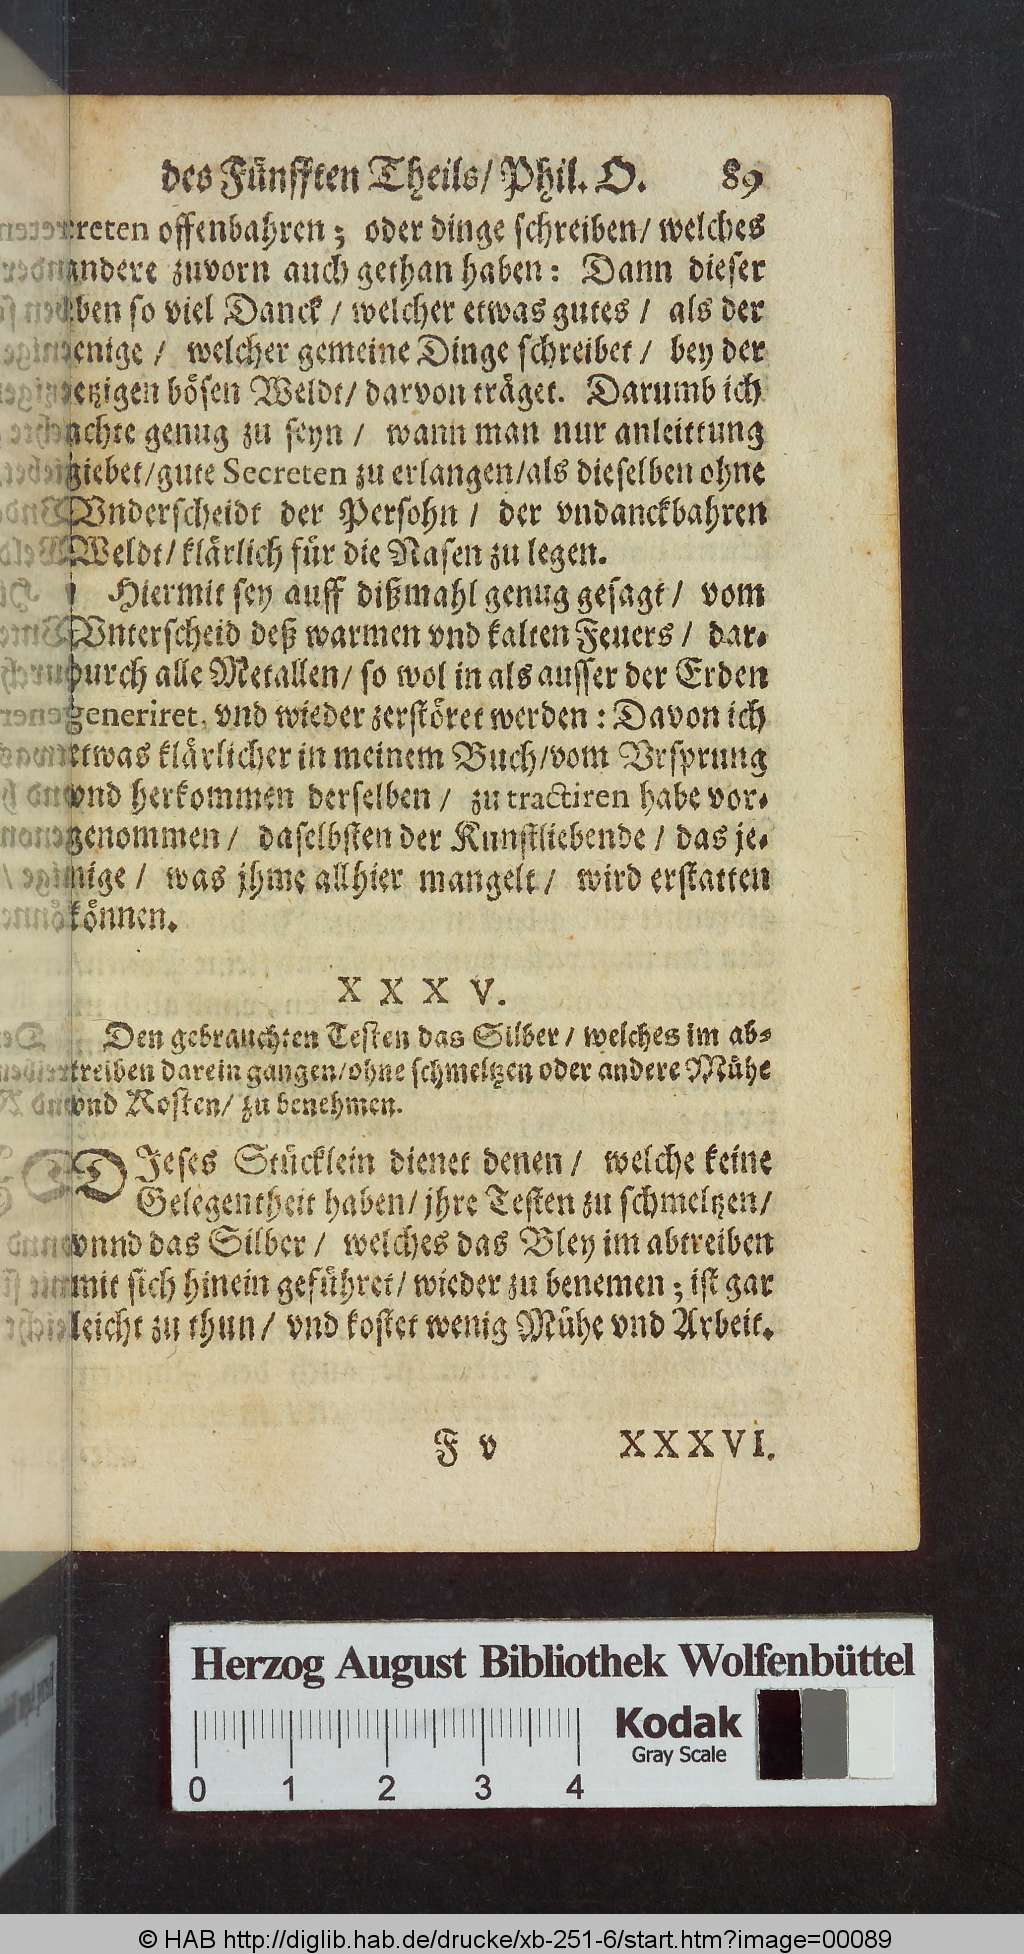 des Fünfften Theils/ Phil. O. 89
creten offenbahren; oder dinge schreiben/ welches
andere zuvorn auch gethan haben: Dann dieser
eben so viel Danck / welcher etwas gutes / als der
jenige / welcher gemeine Dinge schreibet / bey der
jetzigen bösen Weldt/ darvon träget. Darumb ich
achte genug zu seyn / wann man nur anleittung
giebet/gute Secreten zu erlangen/als dieselben ohne
Vnderscheidt der Persohn / der vndanckbahren
Weldt/ klärlich für die Nasen zu legen.
Hiermit sey auff dißmahl genug gesagt / vom
Vnterscheid deß warmen vnd kalten Feuers / dar-
durch alle Metallen/ so wol in als ausser der Erden
generiret, vnd wieder zerstöret werden : Davon ich
etwas klärlicher in meinem Buch/vom Vrsprung
vnd herkommen derselben / zu tractiren habe vor-
genommen / daselbsten der Kunstliebende / das je-
nige / was jhme allhier mangelt / wird erstatten
können.
XXXV.
Den gebrauchten Testen das Silber / welches im ab-
treiben darein gangen/ohne schmeltzen oder andere Mühe
vnd Kosten/ zu benehmen.
DIeses Stücklein dienet denen / welche keine
Gelegentheit haben/ jhre Testen zu schmeltzen/
vnnd das Silber / welches das Bley im abtreiben
mit sich hinein geführet/ wieder zu benemen ; ist gar
leicht zu thun / vnd kostet wenig Mühe vnd Arbeit.
F v XXXVI.
Herzog August Bibliothek Wolfenbüttel
Kodak
Gray Scale
0 1 2 3 4
© HAB http://diglib.hab.de/drucke/xb-251-6/start.htm?image=00089